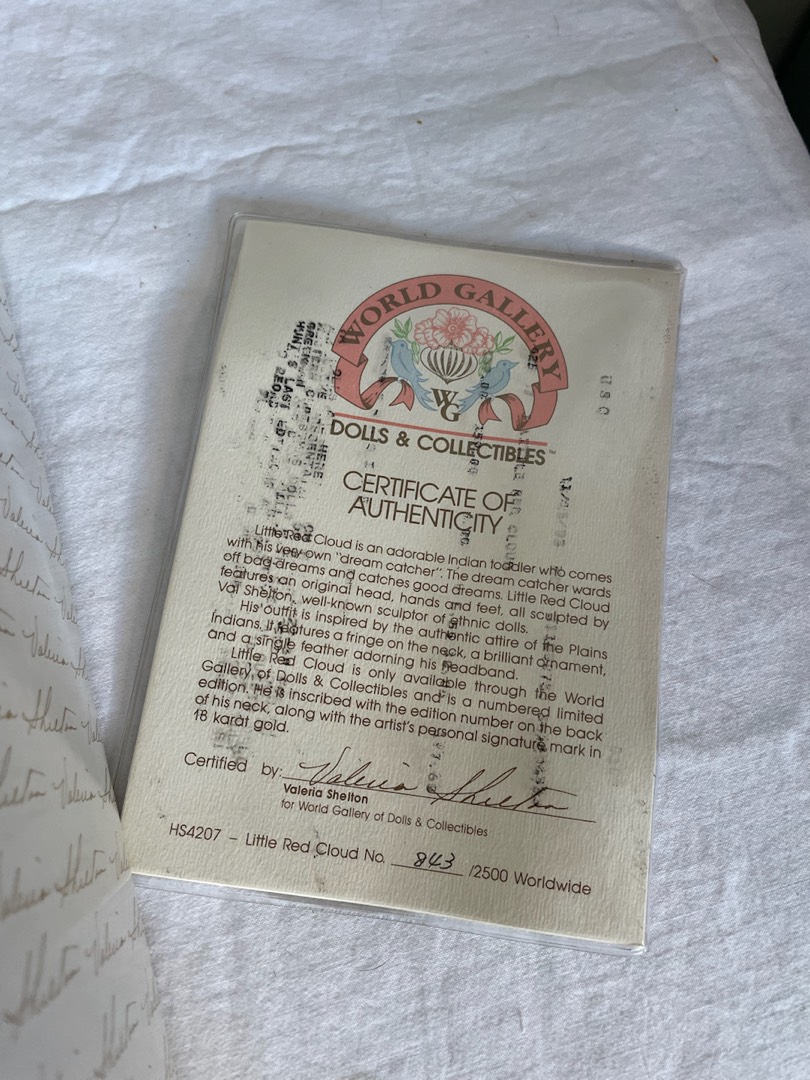 WORLD GALLERY
WG
DOLLS & COLLECTIBLES™
CERTIFICATE OF
AUTHENTICITY
Little Red Cloud is an adorable Indian toddler who comes
with his very own "dream catcher". The dream catcher wards
off bad dreams and catches good dreams. Little Red Cloud
features an original head, hands and feet, all sculpted by
Val Shelton, well-known sculptor of ethnic dolls.
His outfit is inspired by the authentic attire of the Plains
Indians. It features a fringe on the neck, a brilliant ornament,
and a single feather adorning his headband.
Little Red Cloud is only available through the World
Gallery of Dolls & Collectibles and is a numbered limited
edition. He is inscribed with the edition number on the back
of his neck, along with the artist's personal signature mark in
18 karat gold.
Certified by: Valeria Shelton
Valeria Shelton
for World Gallery of Dolls & Collectibles
HS4207 – Little Red Cloud No. 843 /2500 Worldwide
Valeria Shelton